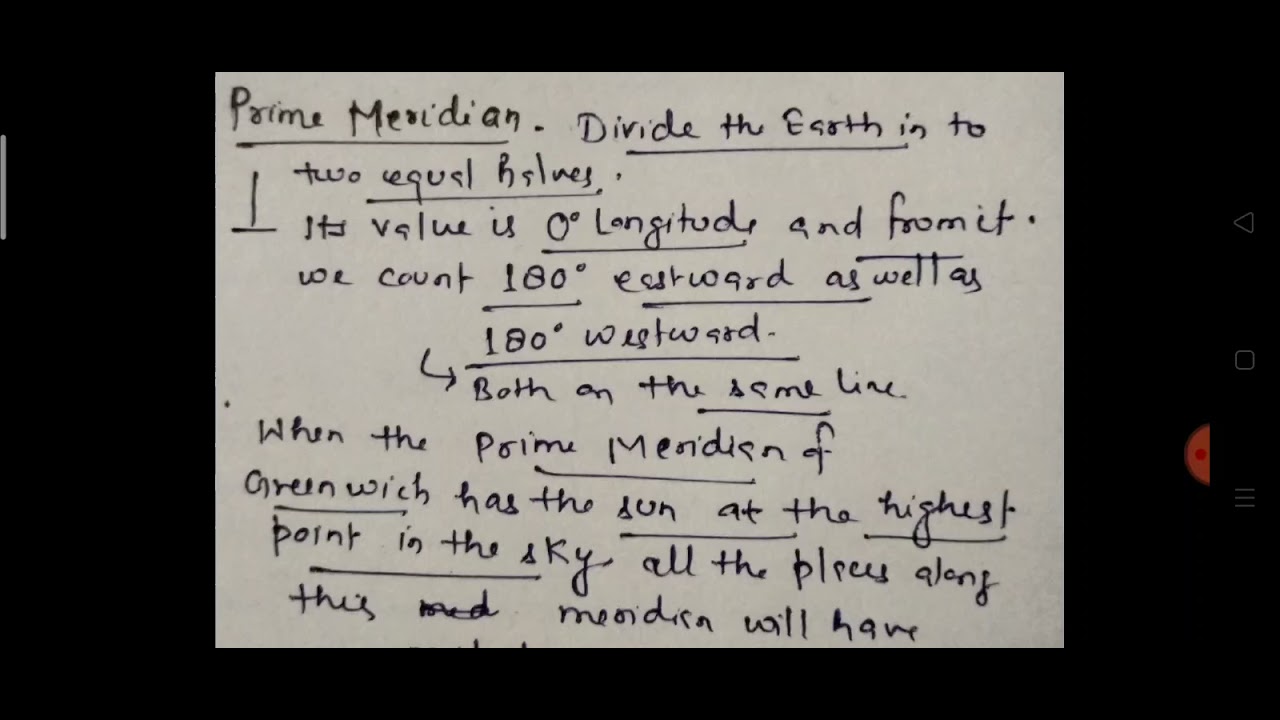 Prime Meridian. Divide the Earth in to
two equal halves.
Its value is 0° Longitude and from it.
we count 180° eastward as well as
180° westward.
Both on the same line.
When the Prime Meridian of
Greenwich has the sun at the highest
point in the sky, all the places along
this meridian will have